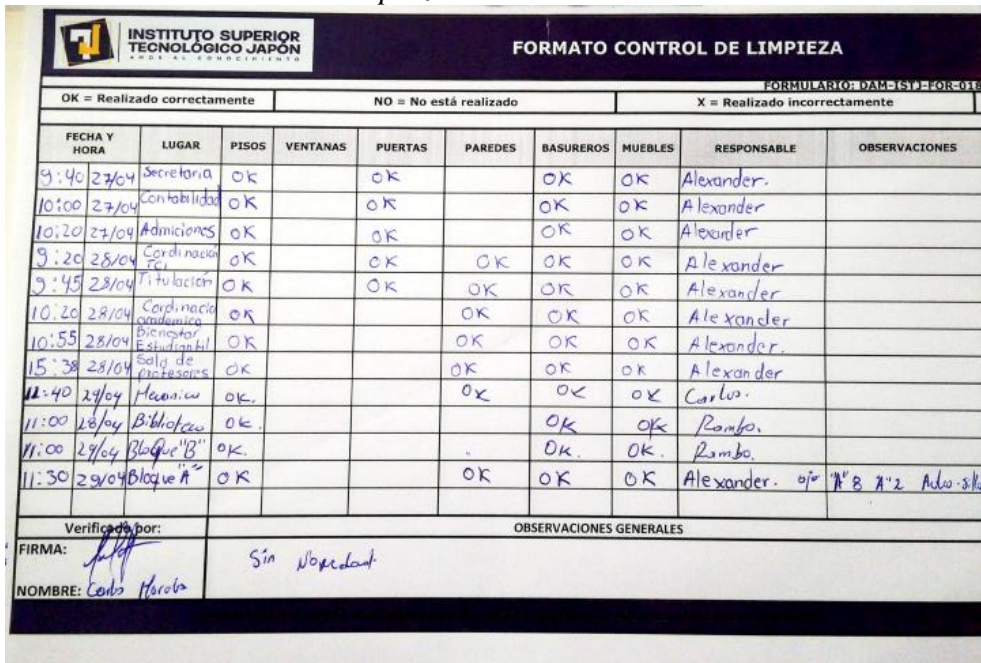 INSTITUTO SUPERIOR
TECNOLÓGICO JAPÓN
AMOR AL CONOCIMIENTO
FORMATO CONTROL DE LIMPIEZA
FORMULARIO: DAM-ISTJ-FOR-018
OK = Realizado correctamente NO = No está realizado X = Realizado incorrectamente
FECHA Y HORA LUGAR PISOS VENTANAS PUERTAS PAREDES BASUREROS MUEBLES RESPONSABLE OBSERVACIONES
9:40 27/04 Secretaria OK OK OK OK Alexander.
10:00 27/04 Contabilidad OK OK OK OK Alexander
10:20 27/04 Admiciones OK OK OK OK Alexander
9:20 28/04 Cordinación TCI OK OK OK OK OK Alexander
9:45 28/04 Titulación OK OK OK OK OK Alexander
10:20 28/04 Cordinacio academica OK OK OK OK Alexander
10:55 28/04 Bienestar Estudiantil OK OK OK OK Alexander.
15:38 28/04 Sala de profesores OK OK OK OK Alexander
12:40 29/04 Mecanica OK. OK OK OK Carlos.
11:00 28/04 Biblioteca OK. OK OK Rambo.
11:00 29/04 Bloque "B" OK. OK. OK. Rambo.
11:30 29/04 Bloque "A" OK OK OK OK Alexander. ojo "A" 8 A"2
Verificado por: OBSERVACIONES GENERALES
FIRMA:
Sin Novedad.
NOMBRE: Carlos